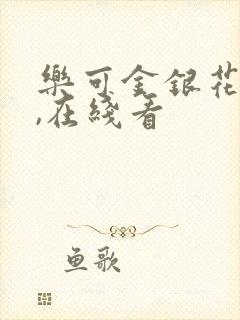 樂可金銀花
,在綫看
鱼歌